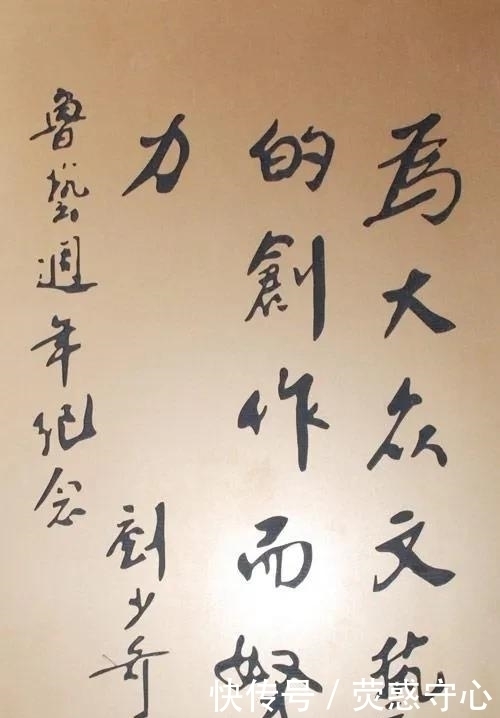 為大众文藝
的創作而努
力
魯藝週年紀念
劉少奇
快传号 / 荧惑守心